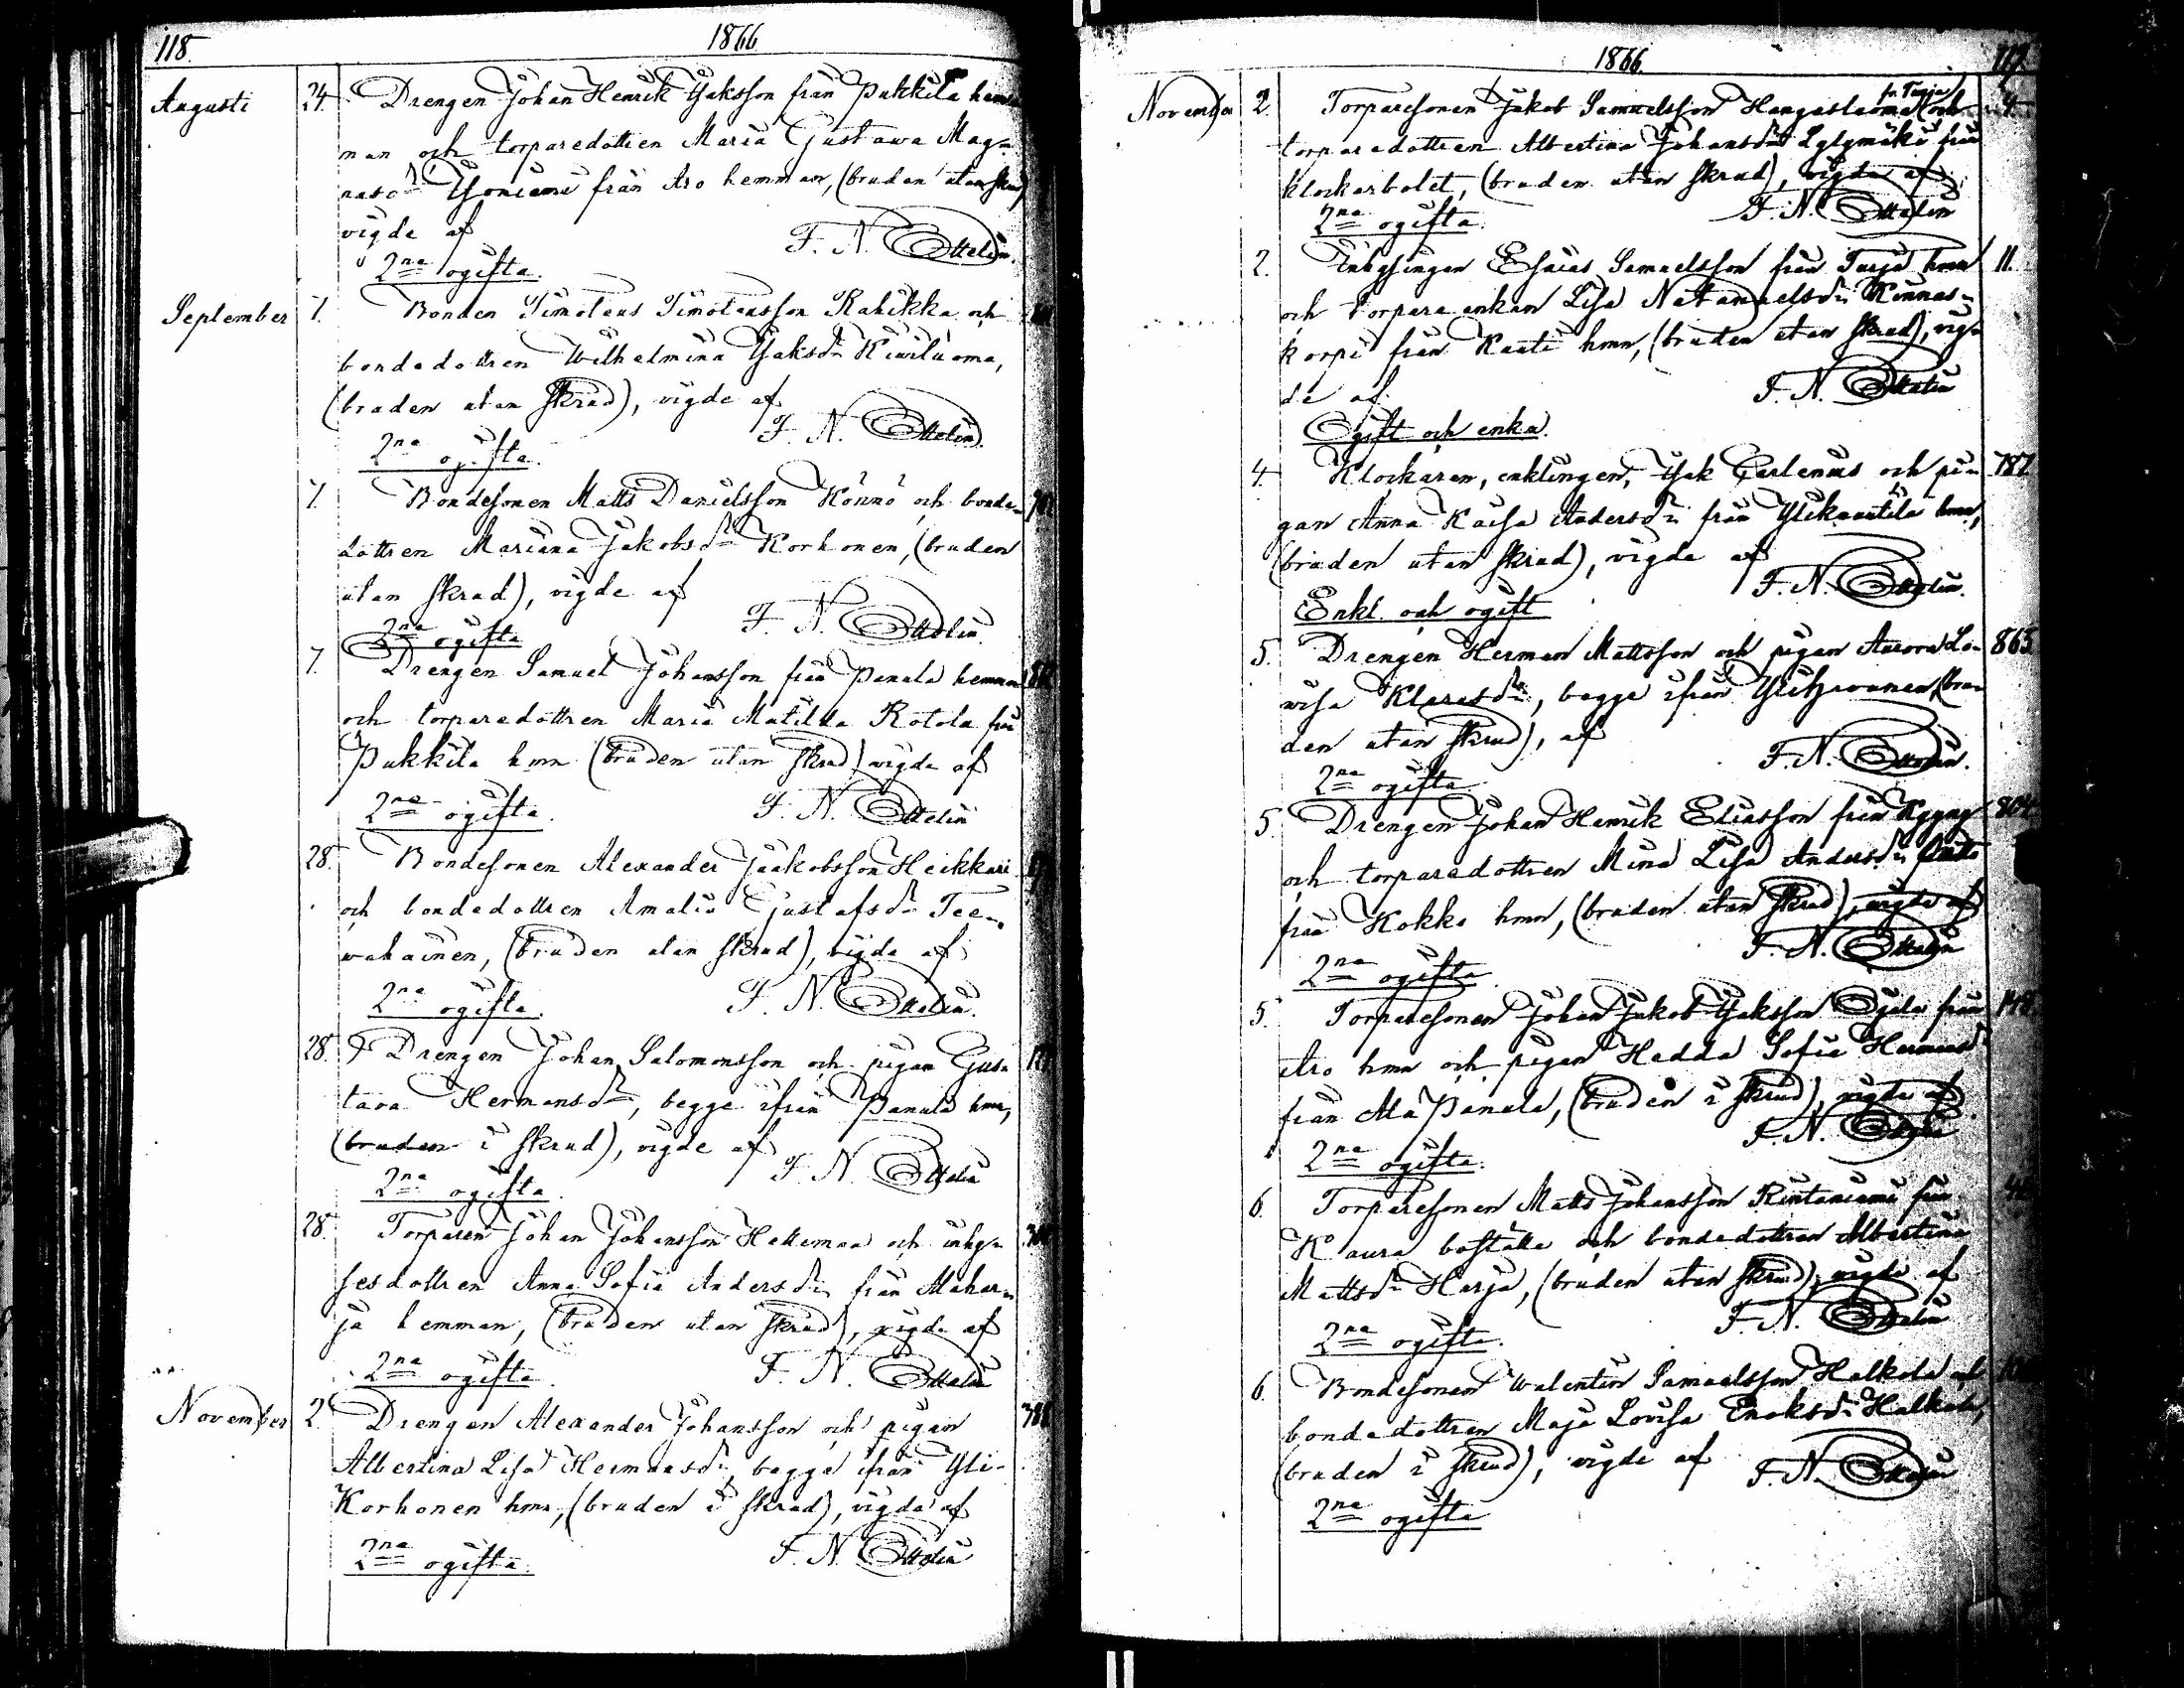 118. 1866
Augusti 24. Drengen Johan Henrik Isaksson från Pukkila hem
man och torparedottren Maria Gustawa Mag-
nusdr Yoniemi från Aro hemman, (bruden utan skrud)
vigde af F. N. Ottelin.
2ne ogifta.
September 7. Bonden Timoteus Timoteusson Rahikka och
bondedottren Wilhelmina Isaksdr Kiviluoma,
(bruden utan skrud), vigde af
2ne ogifta. F. N. Ottelin.
7. Bondesonen Matts Danielsson Könnö och bonde-
dottren Mariana Jakobsdr Korhonen, (bruden
utan skrud), vigde af
2ne ogifta F. N. Ottelin.
7. Drengen Samuel Johansson från Panula hemman
och torparedottren Maria Matilda Rotola från
Pukkila hmn (bruden utan skrud) vigde af
2ne ogifta. F. N. Ottelin
28. Bondesonen Alexander Jaakobsson Heikkari
och bondedottren Amalia Gustafsdr Tee-
wahainen, (bruden utan skrud), vigde af
2ne ogifta. F. N. Ottelin.
28. Drengen Johan Salomonsson och pigan Gus-
tava Hermansdr, begge ifrån Panula hmn,
(bruden i skrud), vigde af
2ne ogifta. F. N. Ottelin
28. Torparen Johan Johansson Hettemaa och inhy-
sesdottren Anna Sofia Andersdr från Alahar-
ja hemman, (bruden utan skrud), vigde af
2ne ogifta. F. N. Ottelin
November 2. Drengen Alexander Johansson och pigan
Albertina Lisa Hermansdr, begge ifrån Yli-
Korhonen hmn, (bruden i skrud), vigde af
2ne ogifta. F. N. Ottelin
1866.
November 2. Torparesonen Jakob Samuelsson Hangasluoma fr. Turja och 4
torparedottren Albertina Johansdr Lylymäki från
klockarbolet, (bruden utan skrud), vigde af
2ne ogifta. F. N. Ottelin
2. Inhysingen Esaias Samuelsson från Turja hmn 11.
och torpare enkan Lisa Natanaelsdr Kinnas-
korpi från Kaati hmn, (bruden utan skrud), vig-
de af F. N. Ottelin
Ogift och enka.
4. Klockaren, enklingen, Isak Carlenius och pi- 787
gan Anna Kaisa Andersdr från Ylikauttila hmn,
(bruden utan skrud), vigde af
Enkl. och ogift F. N. Ottelin.
5. Drengen Herman Mattsson och pigan Aurora Lo- 865
visa Klarasdr, begge ifrån Ylihirvonen, (bru-
den utan skrud), af
2ne ogifta F. N. Ottelin.
5. Drengen Johan Henrik Eliasson från Kyyny
och torparedottren Mina Lisa Andersdr
från Kokko hmn, (bruden utan skrud), vigde af
2ne ogifta F. N. Ottelin
5. Torparesonen Johan Jakob Isaksson Ojala från
Aro hmn och pigan Hedda Sofia Hermansd
från Ala Panula, (bruden i skrud), vigde af
2ne ogifta. F. N. Ottelin
6. Torparesonen Matts Johansson Rintaniemi från
Kaura boställe och bondedottren Albertina
Mattsdr Harja, (bruden utan skrud), vigde af
2ne ogifta. F. N. Ottelin
6. Bondesonen Walentin Samuelsson Halkola och
bondedottren Maja Lovisa Enoksdr Halkola,
(bruden i skrud), vigde af F. N. Ottelin
2ne ogifta